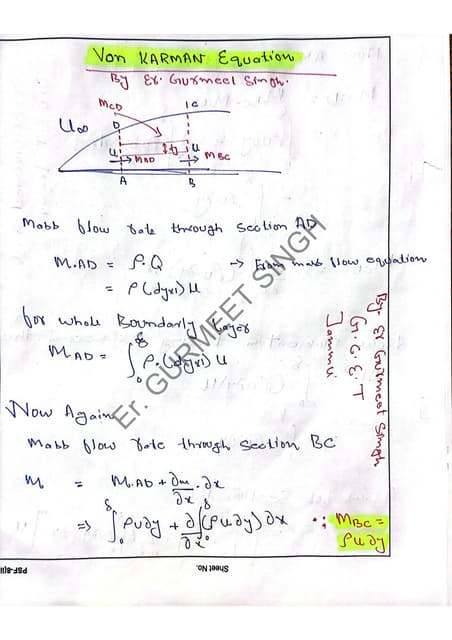 Von KARMAN Equation
By Er. Gurmeet Singh.
MCD
U∞ D C
u dy u MBC
MAD
A B
Mass flow rate through section AD
M.AD = ρ.Q → From mass flow equation
= ρ(dyx1)u
for whole Boundarly Layer
MAD = ∫₀^δ ρ.(dyx1) u
Now Again
Mass flow rate through section BC
M = M.AD + ∂m/∂x . ∂x
⇒ ∫₀^δ ρu∂y + ∂/∂x (∫₀^δ ρu∂y) ∂x ∵ MBC =
ρu∂y
By- Er Gurmeet Singh
G.C.E.T
Jammu
Er. GURMEET SINGH
Sheet No.